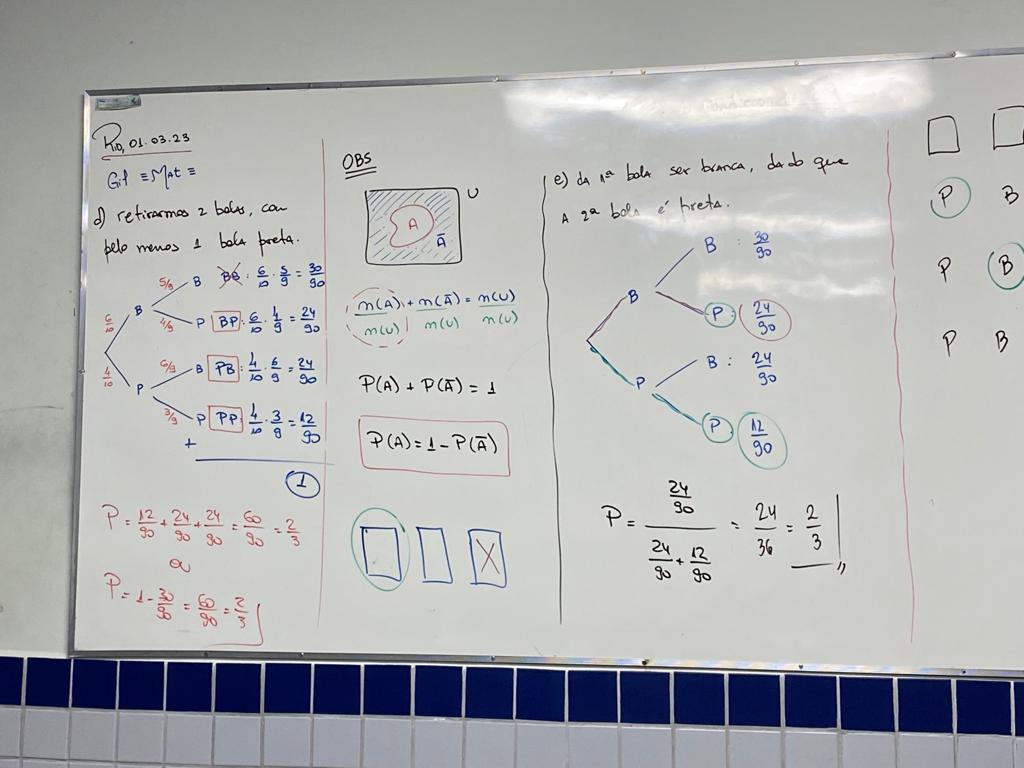 Rio, 01.03.23
Gil ≡ Mat ≡
d) retirarmos 2 bolas, com
pelo menos 1 bola preta.
6/10 B 5/9 B BB : 6/10 · 5/9 = 30/90
4/9 P BP : 6/10 · 4/9 = 24/90
4/10 P 6/9 B PB : 4/10 · 6/9 = 24/90
3/9 P PP : 4/10 · 3/9 = 12/90
+
1
P = 12/90 + 24/90 + 24/90 = 60/90 = 2/3
ou
P = 1 - 30/90 = 60/90 = 2/3
OBS
U
A
Ā
n(A)/n(U) + n(Ā)/n(U) = n(U)/n(U)
P(A) + P(Ā) = 1
P(A) = 1 - P(Ā)
X
e) da 1ª bola ser branca, dado que
a 2ª bola é preta.
B : 30/90
B
P 24/90
B : 24/90
P
P 12/90
P = (24/90)/(24/90 + 12/90) = 24/36 = 2/3
P B
P B
P B